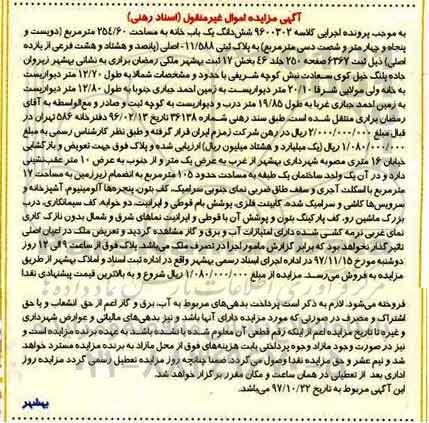 آگهی مزایده اموال غیرمنقول (اسناد رهنی)
به موجب پرونده اجرایی کلاسه ۹۶۰۰۳۰۲ شش‌دانگ یک باب خانه به مساحت ۲۵۴/۶۰ مترمربع (دویست و
پنجاه و چهار متر و شصت دسی مترمربع) به پلاک ثبتی ۱۱/۵۸۸ - اصلی (پانصد و هشتاد و هشت فرعی از یازده
اصلی) ذیل ثبت ۶۳۶۷ صفحه ۲۵۰ جلد ۴۶ بخش ۱۷ ثبت بهشهر ملکی رمضان براری به نشانی بهشهر زیروان
جاده پلنگ خیل کوی سعادت نبش کوچه شریفی با حدود و مشخصات شمالا به طول ۱۲/۷۰ متر دیواریست
به خانه ولی مولایی شرقا ۲۰/۱۰ متر دیواریست به زمین احمد جباری جنوبا به طول ۱۲/۸۰ متر دیواریست
به زمین احمد جباری غربا به طول ۱۹/۸۵ متر درب و دیواریست به کوچه ثبت و صادر و مع‌الواسطه به آقای
رمضان براری منتقل شده است. طبق سند رهنی شماره ۳۶۱۳۸ تاریخ ۹۶/۰۲/۱۳ دفترخانه ۵۸۶ تهران در
قبال مبلغ ۲/۰۰۰/۰۰۰/۰۰۰ ریال در رهن شرکت زمزم ایران قرار گرفته و طبق نظر کارشناس رسمی به مبلغ
۱/۰۸۰/۰۰۰/۰۰۰ ریال (یک میلیارد و هشتاد میلیون ریال) ارزیابی شده و پلاک فوق جهت تعویض و بازگشایی
خیابان ۱۶ متری مصوبه شهرداری بهشهر از غرب به عرض یک متر و از جنوب به عرض ۱۰ متر عقب‌نشینی
دارد و در آن یک واحد ساختمان یک طبقه به مساحت حدود ۱۰۵ مترمربع به انضمام زیرزمین به مساحت ۱۷
مترمربع با اسکلت آجری و سقف طاق ضربی نمای جنوبی سرامیک، کف بتون، پنجره‌ها آلومینیوم، آشپزخانه و
سرویس‌ها کاشی و سرامیک شده، کابینت فلزی، پوشش بام قوطی و ایرانیت، دو خوابه، کف سیمانکاری، درب
بزرگ ماشین رو، کف پارکینگ بتون و پوشش آن با قوطی و ایرانیت نماهای شرق و شمال بدون نازک کاری
نمای غربی نرمه کشی شده دارای امتیازات آب و برق و گاز مشاهده گردید و تعریض ملک در اعیان اصلی
تاثیرگذار نخواهد بود که برابر گزارش مامور اجرا در تصرف مالک می‌باشد. پلاک فوق از ساعت ۹ الی ۱۲ روز
دوشنبه مورخ ۹۷/۱۱/۱۵ در اداره اجرای اسناد رسمی بهشهر واقع در اداره ثبت اسناد و املاک بهشهر از طریق
مزایده به فروش می‌رسد. مزایده از مبلغ ۱/۰۸۰/۰۰۰/۰۰۰ ریال شروع و به بالاترین قیمت پیشنهادی نقدا
فروخته می‌شود. لازم به ذکر است پرداخت بدهی‌های مربوط به آب، برق و گاز اعم از حق انشعاب و یا حق
اشتراک و مصرف در صورتی که مورد مزایده دارای آنها باشد و نیز بدهی‌های مالیاتی و عوارض شهرداری
و غیره تا تاریخ مزایده اعم از اینکه رقم قطعی آن معلوم شده یا نشده باشد به عهده برنده مزایده است و
نیز در صورت وجود مازاد وجوه پرداختی بابت هزینه‌های فوق از محل مازاد به برنده مزایده مسترد خواهد
شد و نیم عشر و حق مزایده نقدا وصول می‌گردد. ضمنا چنانچه روز مزایده تعطیل رسمی گردد مزایده روز
اداری بعد از تعطیلی در همان ساعت و مکان مقرر برگزار خواهد شد.
این آگهی مربوط به تاریخ ۹۷/۱۰/۲۲ می‌باشد.
بهشهر